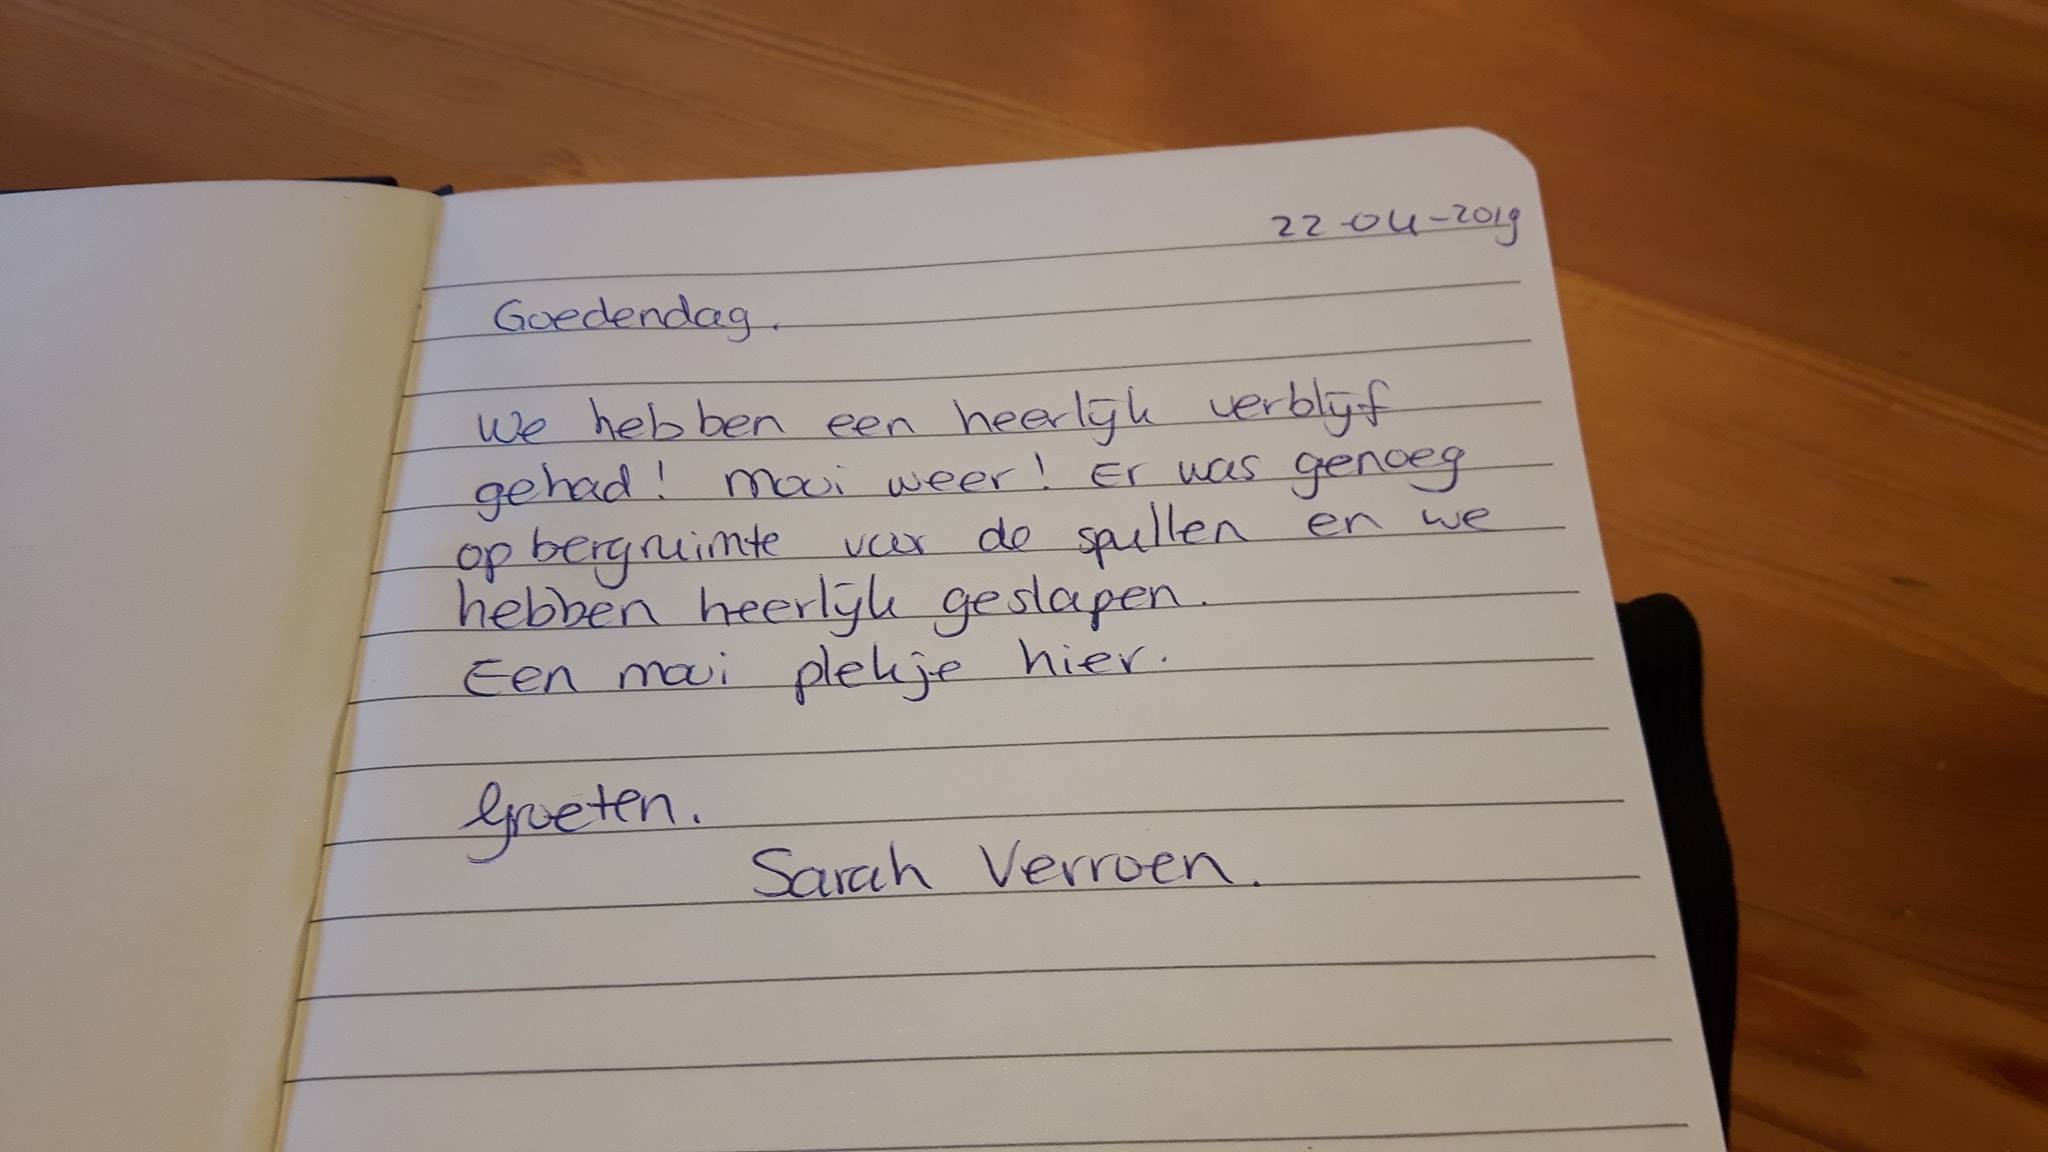 22-04-2019
Goedendag.
We hebben een heerlijk verblijf
gehad! mooi weer! Er was genoeg
opbergruimte voor de spullen en we
hebben heerlijk geslapen.
Een mooi plekje hier.
Groeten.
Sarah Verroen.